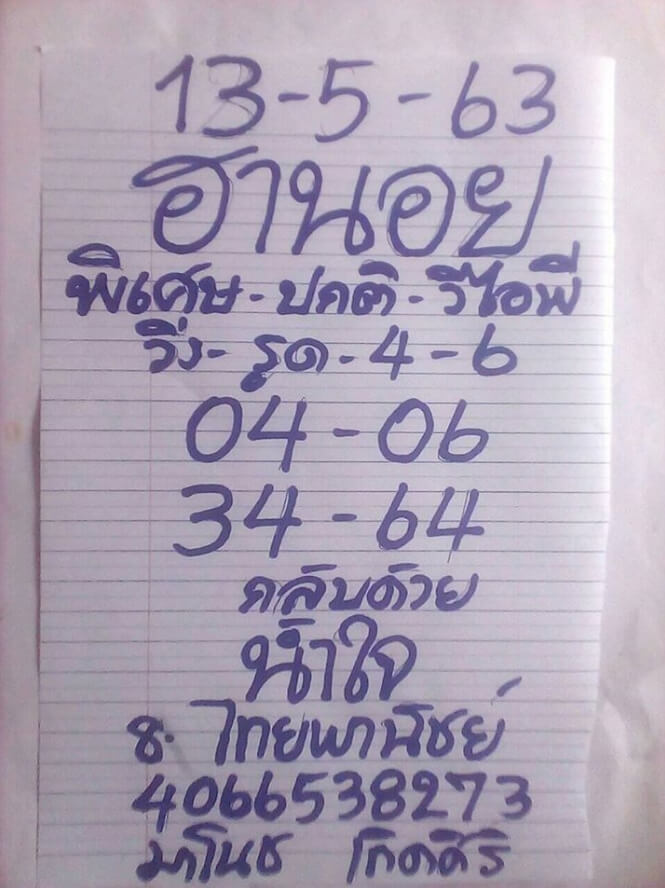 13-5-63
ฮานอย
พิเศษ-ปกติ-วีไอพี
วิ่ง-รูด-4-6
04-06
34-64
กลับด้วย
น้ำใจ
ธ. ไทยพาณิชย์
4066538273
มาโนช เกิดศิริ